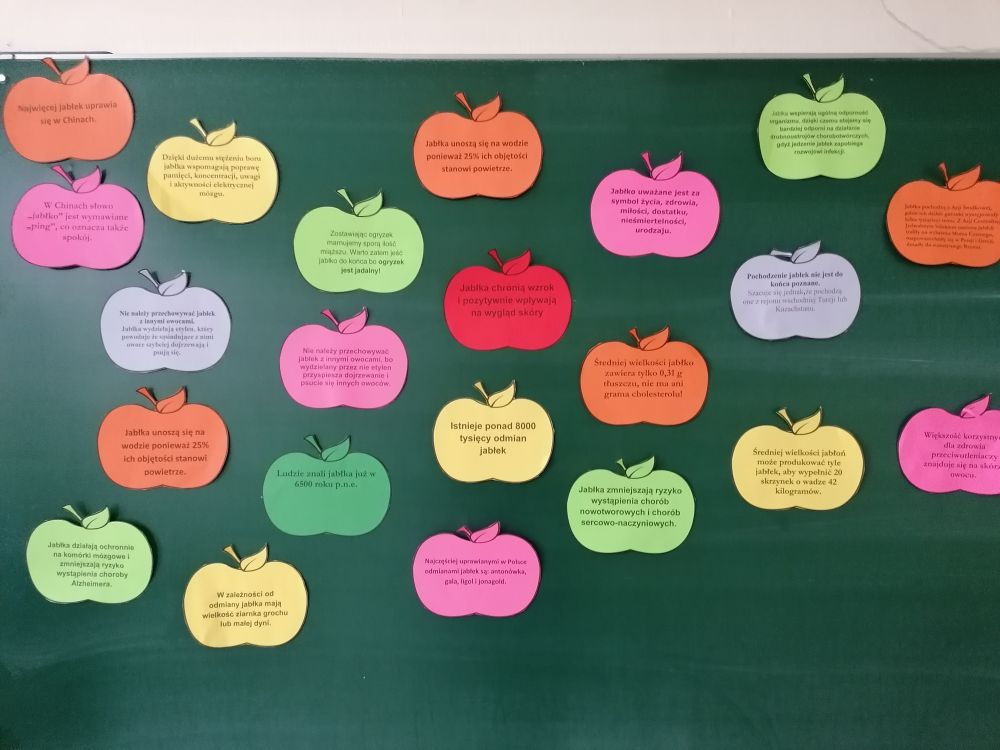 Najwięcej jabłek uprawia
się w Chinach.
Dzięki dużemu stężeniu boru
jabłka wspomagają poprawę
pamięci, koncentracji, uwagi
i aktywności elektrycznej
mózgu.
Jabłka unoszą się na wodzie
ponieważ 25% ich objętości
stanowi powietrze.
Jabłka wspierają ogólną odporność
organizmu, dzięki czemu stajemy się
bardziej odporni na działanie
drobnoustrojów chorobotwórczych,
gdyż jedzenie jabłek zapobiega
rozwojowi infekcji.
W Chinach słowo
„jabłko” jest wymawiane
„ping”, co oznacza także
spokój.
Zostawiając ogryzek
marnujemy sporą ilość
miąższu. Warto zatem jeść
jabłko do końca bo ogryzek
jest jadalny!
Jabłko uważane jest za
symbol życia, zdrowia,
miłości, dostatku,
nieśmiertelności,
urodzaju.
Jabłka pochodzą z Azji Środkowej,
Nie należy przechowywać jabłek
z innymi owocami.
Jabłka wydzielają etylen, który
powoduje że sąsiadujące z nimi
owoce szybciej dojrzewają i
psują się.
Jabłka chronią wzrok
i pozytywnie wpływają
na wygląd skóry
Pochodzenie jabłek nie jest do
końca poznane.
Szacuje się jednak,że pochodzą
one z rejonu wschodniej Turcji lub
Kazachstanu.
Nie należy przechowywać
jabłek z innymi owocami, bo
wydzielany przez nie etylen
przyspiesza dojrzewanie i
psucie się innych owoców.
Średniej wielkości jabłko
zawiera tylko 0,31 g
tłuszczu, nie ma ani
grama cholesterolu!
Jabłka unoszą się na
wodzie ponieważ 25%
ich objętości stanowi
powietrze.
Istnieje ponad 8000
tysięcy odmian
jabłek
Ludzie znali jabłka już w
6500 roku p.n.e.
Średniej wielkości jabłoń
może produkować tyle
jabłek, aby wypełnić 20
skrzynek o wadze 42
kilogramów.
Większość korzystny
dla zdrowia
przeciwutleniaczy
znajduje się na skórz
owocu.
Jabłka zmniejszają ryzyko
wystąpienia chorób
nowotworowych i chorób
sercowo-naczyniowych.
Jabłka działają ochronnie
na komórki mózgowe i
zmniejszają ryzyko
wystąpienia choroby
Alzheimera.
W zależności od
odmiany jabłka mają
wielkość ziarnka grochu
lub małej dyni.
Najczęściej uprawianymi w Polsce
odmianami jabłek są: antonówka,
gala, ligol i jonagold.